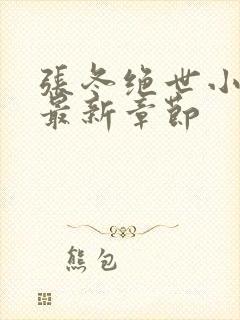 張冬绝世小
最新章節
熊包